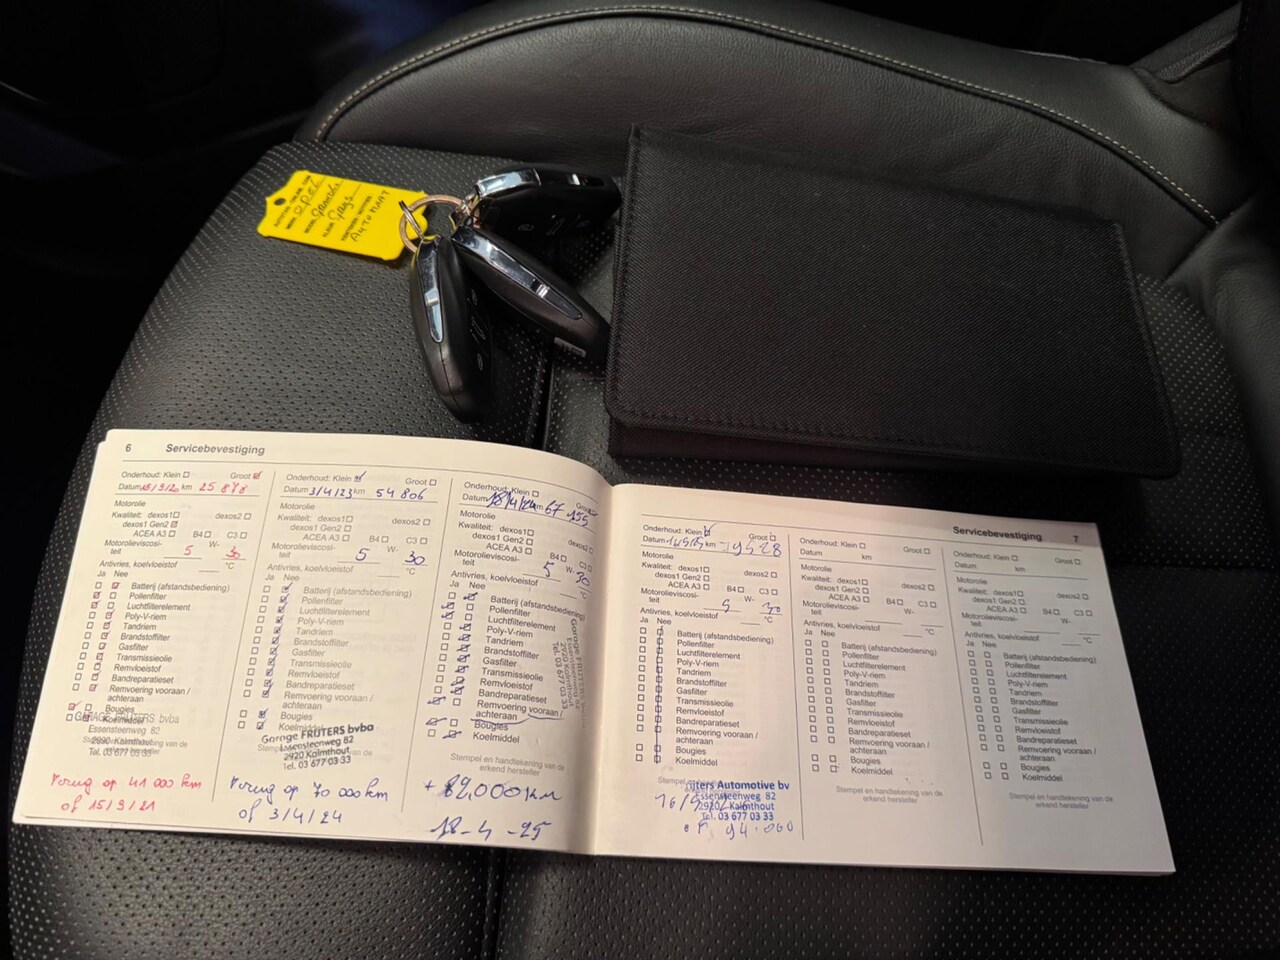 OPEL
Grandland
Grijs
AUTOMAAT
6 Servicebevestiging
Onderhoud: Klein Groot
Datum 15/9/20 km 25 878
Motorolie
Kwaliteit: dexos1 dexos2
dexos1 Gen2
ACEA A3 B4 C3
Motorolieviscosi-
teit 5 W- 30
Antivries, koelvloeistof °C
Ja Nee
Batterij (afstandsbediening)
Pollenfilter
Luchtfilterelement
Poly-V-riem
Tandriem
Brandstoffilter
Gasfilter
Transmissieolie
Remvloeistof
Bandreparatieset
Remvoering vooraan /
achteraan
Bougies
Koelmiddel
GARAGE FRIJTERS bvba
Essensteenweg 82
2920 Kalmthout
Tel. 03 677 03 33
Terug op 41 000 km
of 15/9/21
Onderhoud: Klein Groot
Datum 3/4/23 km 54 806
Motorolie
Kwaliteit: dexos1 dexos2
dexos1 Gen2
ACEA A3 B4 C3
Motorolieviscosi-
teit 5 W- 30
Antivries, koelvloeistof °C
Ja Nee
Batterij (afstandsbediening)
Pollenfilter
Luchtfilterelement
Poly-V-riem
Tandriem
Brandstoffilter
Gasfilter
Transmissieolie
Remvloeistof
Bandreparatieset
Remvoering vooraan /
achteraan
Bougies
Koelmiddel
Garage FRIJTERS bvba
Essensteenweg 82
2920 Kalmthout
Tel. 03 677 03 33
Terug op 70 000 km
of 3/4/24
Onderhoud: Klein Groot
Datum 18/4/24 km 67 155
Motorolie
Kwaliteit: dexos1 dexos2
dexos1 Gen2
ACEA A3 B4 C3
Motorolieviscosi-
teit 5 W- 30
Antivries, koelvloeistof °C
Ja Nee
Batterij (afstandsbediening)
Pollenfilter
Luchtfilterelement
Poly-V-riem
Tandriem
Brandstoffilter
Gasfilter
Transmissieolie
Remvloeistof
Bandreparatieset
Remvoering vooraan /
achteraan
Bougies
Koelmiddel
Garage FRIJTERS
Essensteenweg 82
2920 Kalmthout
Tel. 03 677 03 33
Stempel en handtekening van de
erkend hersteller
+ 82,000 KM
18-4-25
Servicebevestiging 7
Onderhoud: Klein Groot
Datum km 79528
Motorolie
Kwaliteit: dexos1 dexos2
dexos1 Gen2
ACEA A3 B4 C3
Motorolieviscosi-
teit 5 W- 30
Antivries, koelvloeistof °C
Ja Nee
Batterij (afstandsbediening)
Pollenfilter
Luchtfilterelement
Poly-V-riem
Tandriem
Brandstoffilter
Gasfilter
Transmissieolie
Remvloeistof
Bandreparatieset
Remvoering vooraan /
achteraan
Bougies
Koelmiddel
Frijters Automotive bv
Essensteenweg 82
2920 Kalmthout
Tel. 03 677 03 33
of 94.000
Onderhoud: Klein Groot
Datum km
Motorolie
Kwaliteit: dexos1 dexos2
dexos1 Gen2
ACEA A3 B4 C3
Motorolieviscosi-
teit W-
Antivries, koelvloeistof °C
Ja Nee
Batterij (afstandsbediening)
Pollenfilter
Luchtfilterelement
Poly-V-riem
Tandriem
Brandstoffilter
Gasfilter
Transmissieolie
Remvloeistof
Bandreparatieset
Remvoering vooraan /
achteraan
Bougies
Koelmiddel
Stempel en handtekening van de
erkend hersteller
Onderhoud: Klein Groot
Datum km
Motorolie
Kwaliteit: dexos1 dexos2
dexos1 Gen2
ACEA A3 B4 C3
Motorolieviscosi-
teit W-
Antivries, koelvloeistof °C
Ja Nee
Batterij (afstandsbediening)
Pollenfilter
Luchtfilterelement
Poly-V-riem
Tandriem
Brandstoffilter
Gasfilter
Transmissieolie
Remvloeistof
Bandreparatieset
Remvoering vooraan /
achteraan
Bougies
Koelmiddel
Stempel en handtekening van de
erkend hersteller